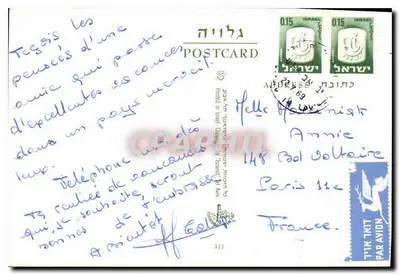 גלויה
POSTCARD
Reçois les
pensées d'une
amie qui passe
d'excellentes vacances
dans un pays merveil
leux.
Téléphone moi dès
Ta rentrée de vacances
qui, je souhaite, seront
bonnes. Je t'embrasse
A bientôt
323
0.15 ISRAEL
ישראל
0.15 ISRAEL
ישראל
ADDRESS כתובת
Melle
Annie
148 Bd Voltaire
Paris 11e
France.
דואר אויר
PAR AVION